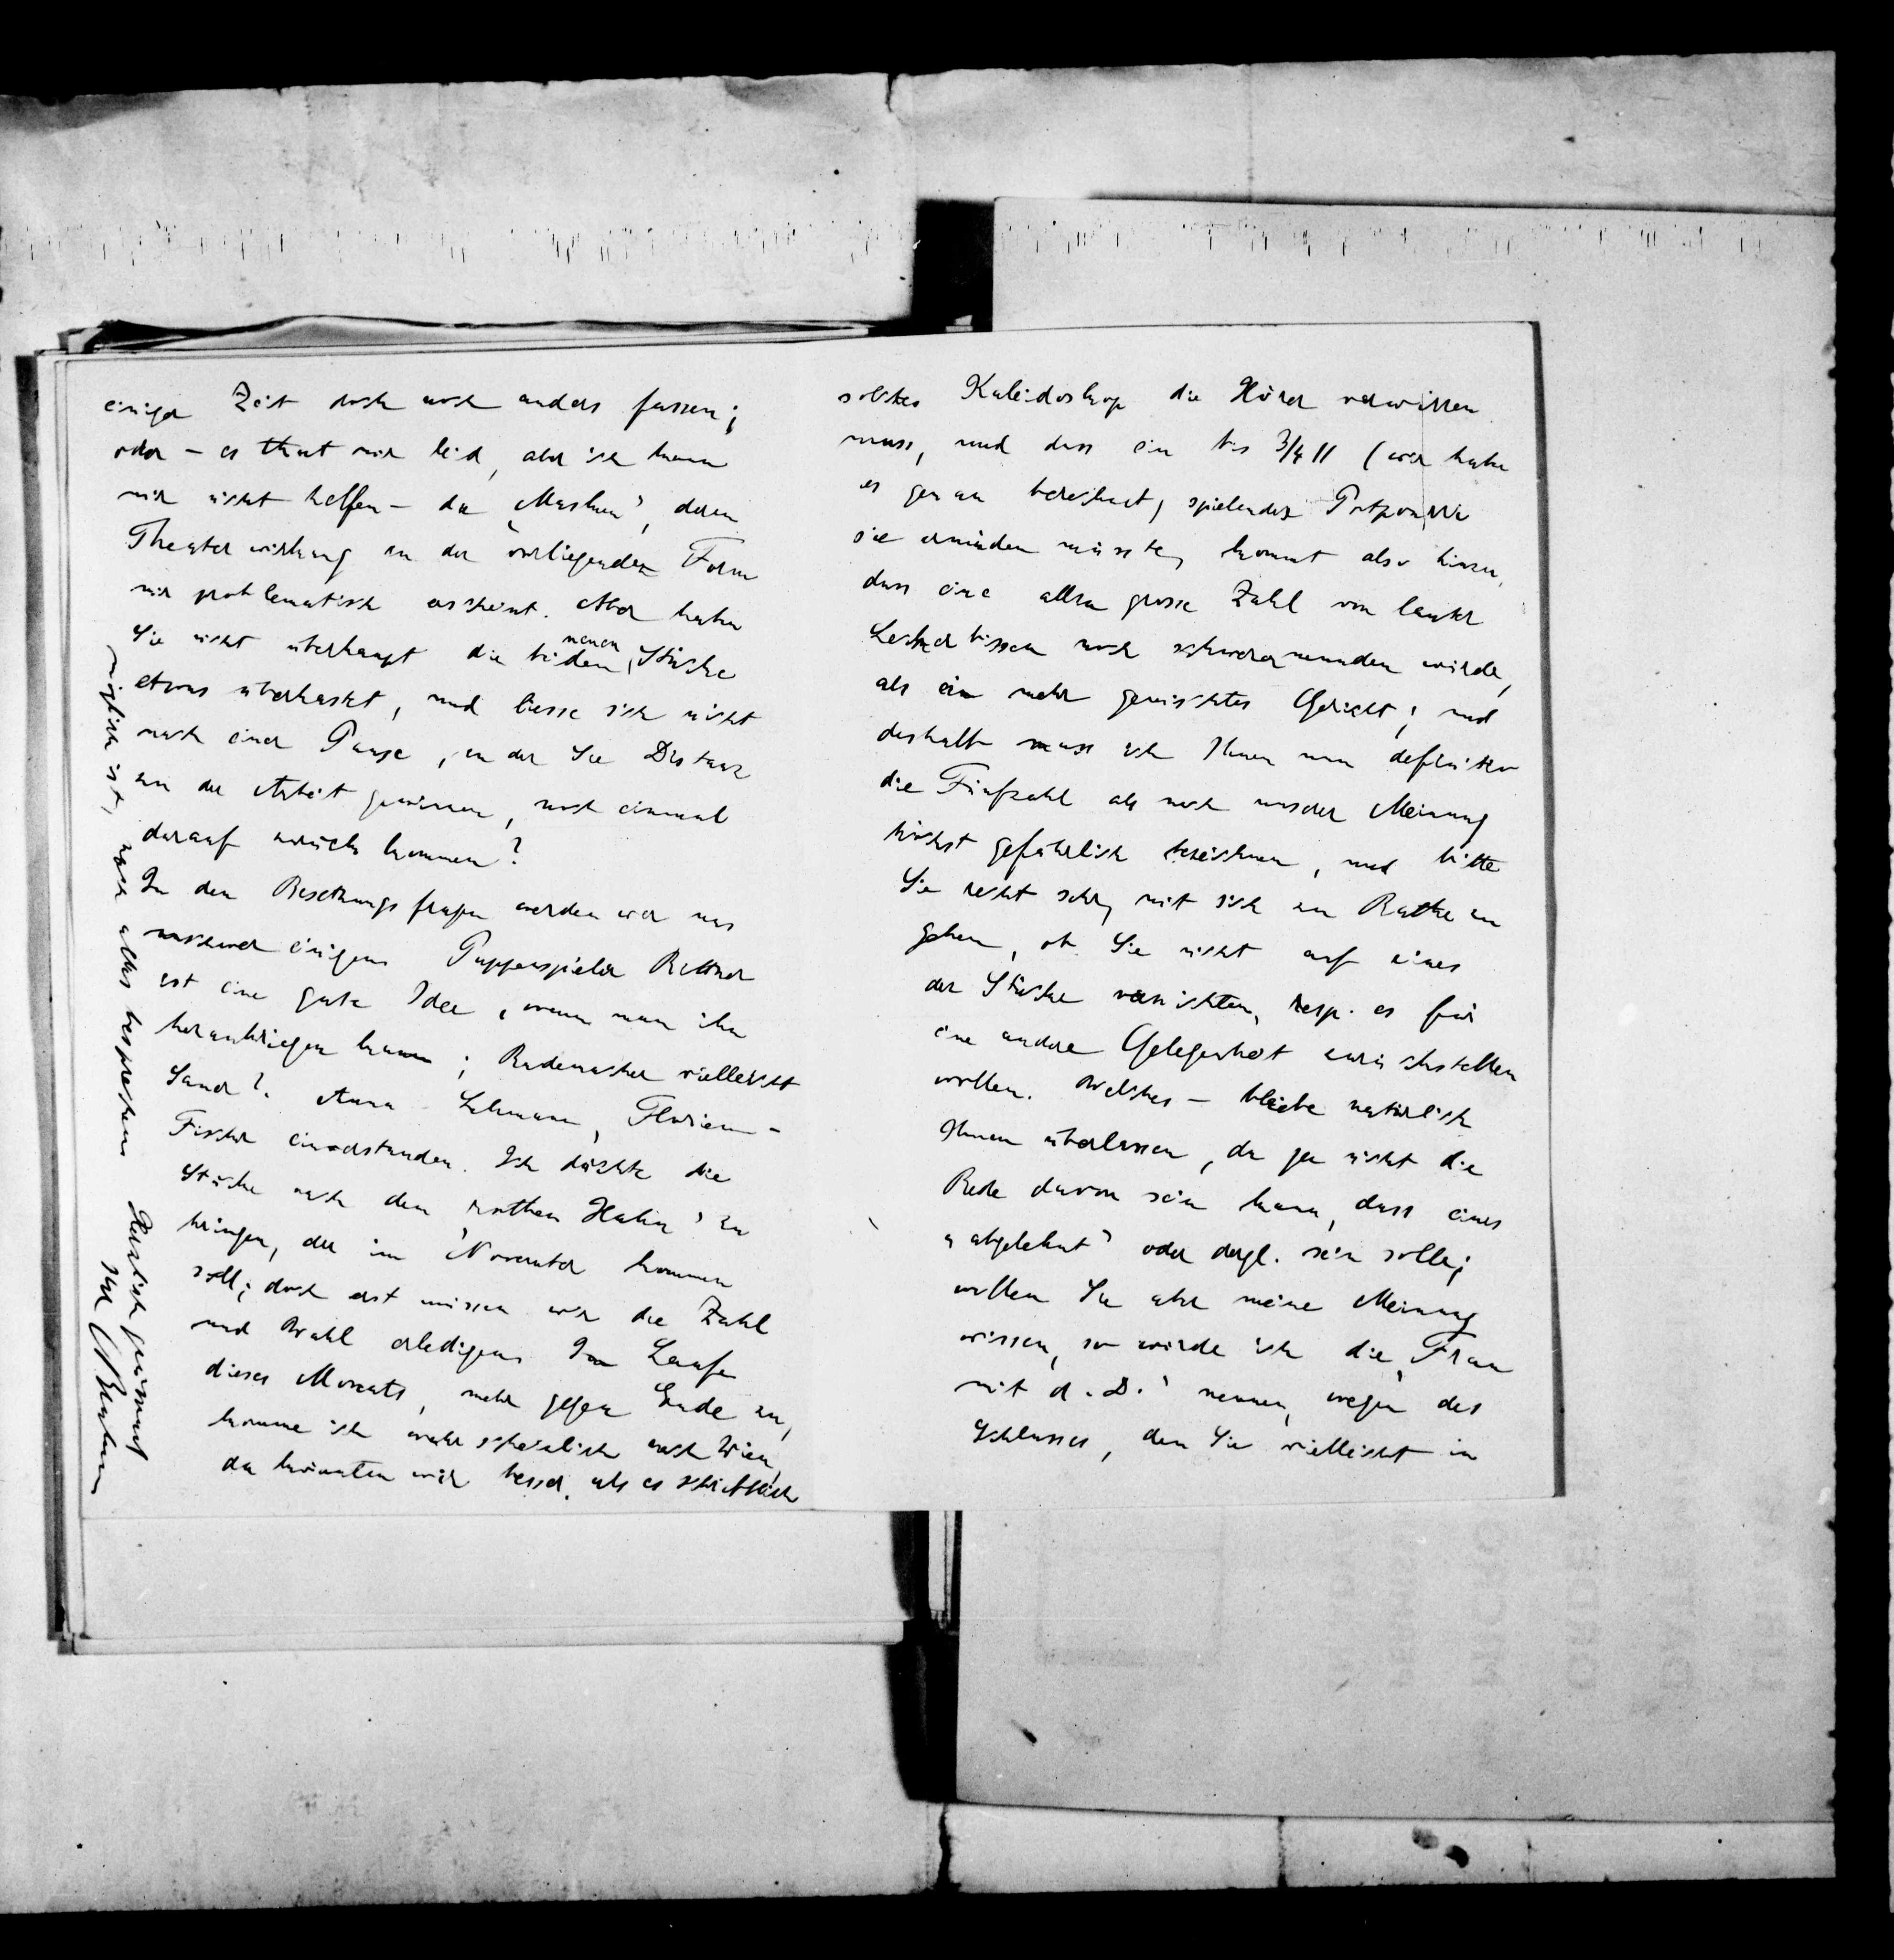 solches Kaleidoskop die Hörer verwirren
muss, und dass ein bis 3/4 11 (wir haben
es genau berechnet) spielendes Potpourri
sie ermüden müsste, kommt also hinzu,
dass eine allzu grosse Zahl von lauter
Leckerbissen noch schwerer munden würde,
als ein mehr gemischtes Gericht; und
deshalb muss ich Ihnen nun definitiv
die Fünfzahl als nach unserer Meinung
höchst gefährlich bezeichnen, und bitte
Sie recht sehr, mit sich zu Rathe zu
gehen, ob Sie nicht auf eines
der Stücke verzichten, resp. es für
eine andere Gelegenheit zurückstellen
wollen. Welches – bliebe natürlich
Ihnen überlassen, da ja nicht die
Rede davon sein kann, dass eines
„abgelehnt“ oder dergl. sein solle;
wollen Sie aber meine Meinung
wissen, so würde ich die „Frau
mit d. D.“ nennen, wegen des
Schlusses, den Sie vielleicht in
einiger Zeit doch noch anders fassen;
oder – es thut mir leid, aber ich kann
mir nicht helfen – die „Masken“, deren
Theaterwirkung in der vorliegenden Form
mir problematisch erscheint. Aber haben
Sie nicht überhaupt die beiden neuen Stücke
etwas überhastet, und liesse sich nicht
nach einer Pause, in der Sie Distanz
zu der Arbeit gewinnen, noch einmal
darauf zurück kommen?
In den Besetzungsfragen werden wir uns
unschwer einigen. Puppenspieler Rittner
ist eine gute Idee, wenn man ihn
herankriegen kann; Rademacher vielleicht
Sauer? Anna – Lehmann, Florian –
Fischer einverstanden. Ich dächte die
Stücke nach dem „rothen Hahn“ zu
bringen, der im November kommen
soll; doch erst müssen wir die Zahl
und Wahl erledigen. Im Laufe
dieses Monats, mehr gegen Ende zu,
komme ich wahrscheinlich nach Wien,
da könnten wir besser, als es schriftlich
möglich ist, noch alles besprechen.
Herzlich grüssend
Ihr OBrahm